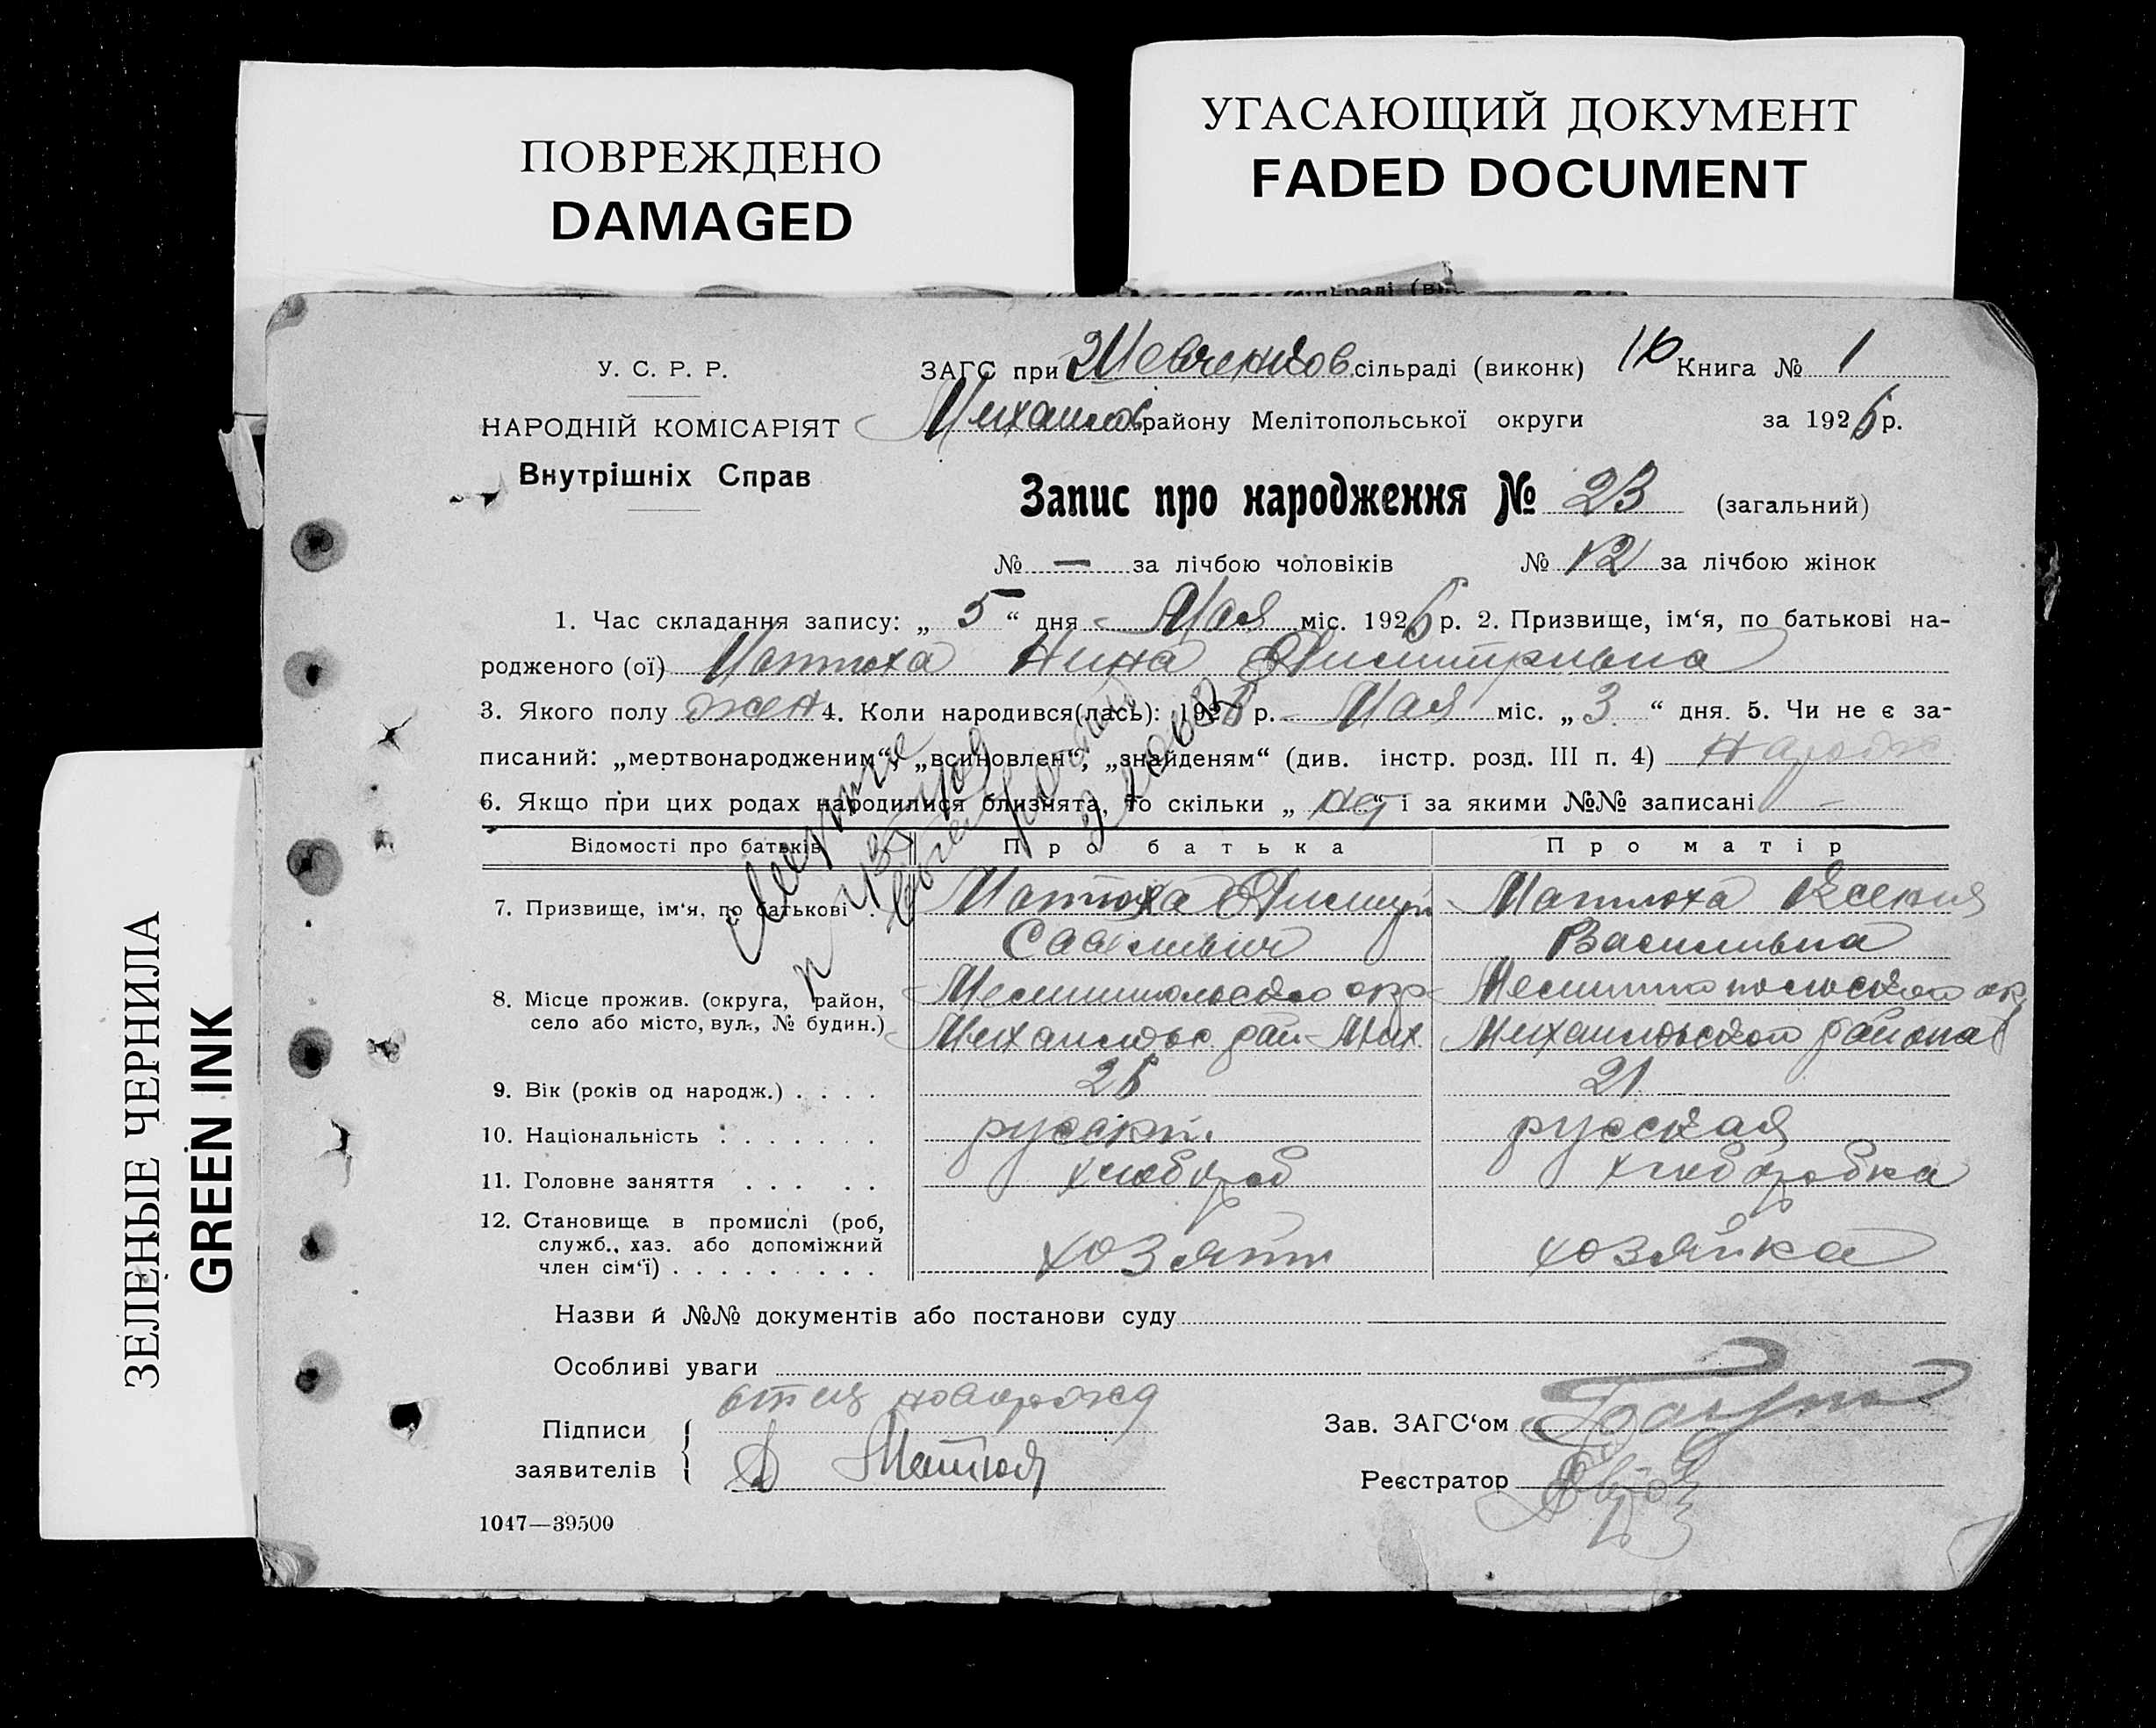 ПОВРЕЖДЕНО
DAMAGED
УГАСАЮЩИЙ ДОКУМЕНТ
FADED DOCUMENT
ЗЕЛЕНЫЕ ЧЕРНИЛА
GREEN INK
У. С. Р. Р.
НАРОДНІЙ КОМІСАРІЯТ
Внутрішніх Справ
ЗАГС при Шевченков сільраді (виконк) 16 Книга № 1
Михайлов району Мелітопольської округи за 1926 р.
Запис про народження № 23 (загальний)
№ — за лічбою чоловіків № 12 за лічбою жінок
1. Час складання запису: „ 5 “ дня Мая міс. 1926 р. 2. Призвище, ім‘я, по батькові на-
родженого (ої) Матюха Нина Дмитриевна
3. Якого полу жен 4. Коли народився(лась): 1926 р. Мая міс. „ 3 “ дня. 5. Чи не є за-
писаний: „мертвонародженим“, „всиновлен“, „знайденям“ (див. інстр. розд. III п. 4)
6. Якщо при цих родах народилися близнята, то скільки „ нет “ і за якими №№ записані —
Відомості про батьків Про батька Про матір
7. Призвище, ім‘я, по батькові . Матюха Дмитр Матюха Ксения
Савельич Васильевна
8. Місце прожив. (округа, район, Мелитопольского окр Мелитопольской ок
село або місто, вул., № будин.) Михайловс рай Мих Михайловской района
9. Вік (років од народж.) . . . . 25 21
10. Національність . . . . . . . русский русская
11. Головне заняття . . . . . хлебороб хлеборобка
12. Становище в промислі (роб, хозяин хозяйка
служб., хаз. або допоміжний
член сім‘ї) . . . . . . . . .
Назви й №№ документів або постанови суду
Особливі уваги
отец новорожд
Підписи
заявителів Д Матюха
Зав. ЗАГС‘ом
Реєстратор
1047—39500